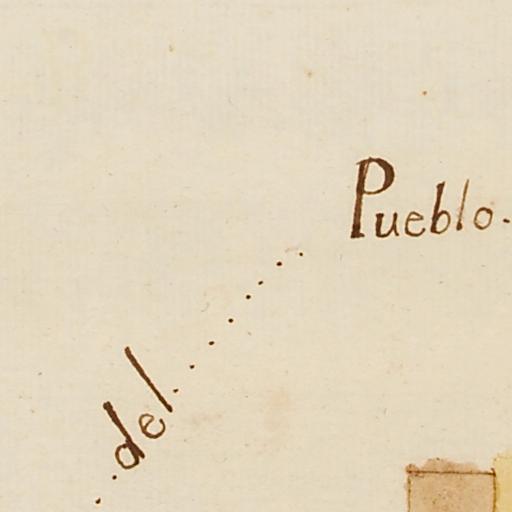 del
Pueblo.